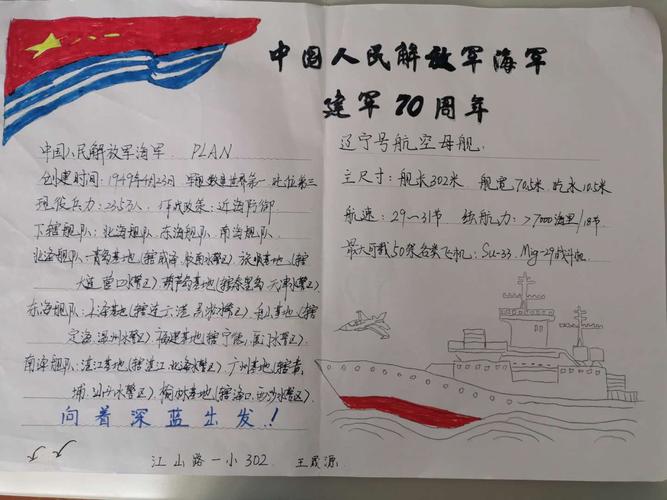 中国人民解放军海军
建军70周年
中国人民解放军海军 PLAN
创建时间：1949年4月23日 军舰数量世界第一 吨位第三
现役兵力：23.5万人 作战政策：近海防御
下辖舰队：北海舰队、东海舰队、南海舰队
北海舰队：青岛基地(辖威海、胶南水警区)、旅顺基地(辖
大连、营口水警区)、葫芦岛基地(辖秦皇岛、天津水警区).
东海舰队：上海基地(辖连云港、吴淞水警区)、舟山基地(辖
定海、温州水警区)、福建基地(辖宁德、厦门水警区).
南海舰队：湛江基地(辖湛江、北海水警区)、广州基地(辖黄
埔、汕头水警区)、榆林基地(辖海口、西沙水警区).
向着深蓝出发！
辽宁号航空母舰.
主尺寸：舰长302米 舰宽70.5米 吃水10.5米
航速：29~31节 续航力：>7000海里/18节
最大可载50架各类飞机：Su-33、Mig-29战斗机
江山路一小302 王晟源